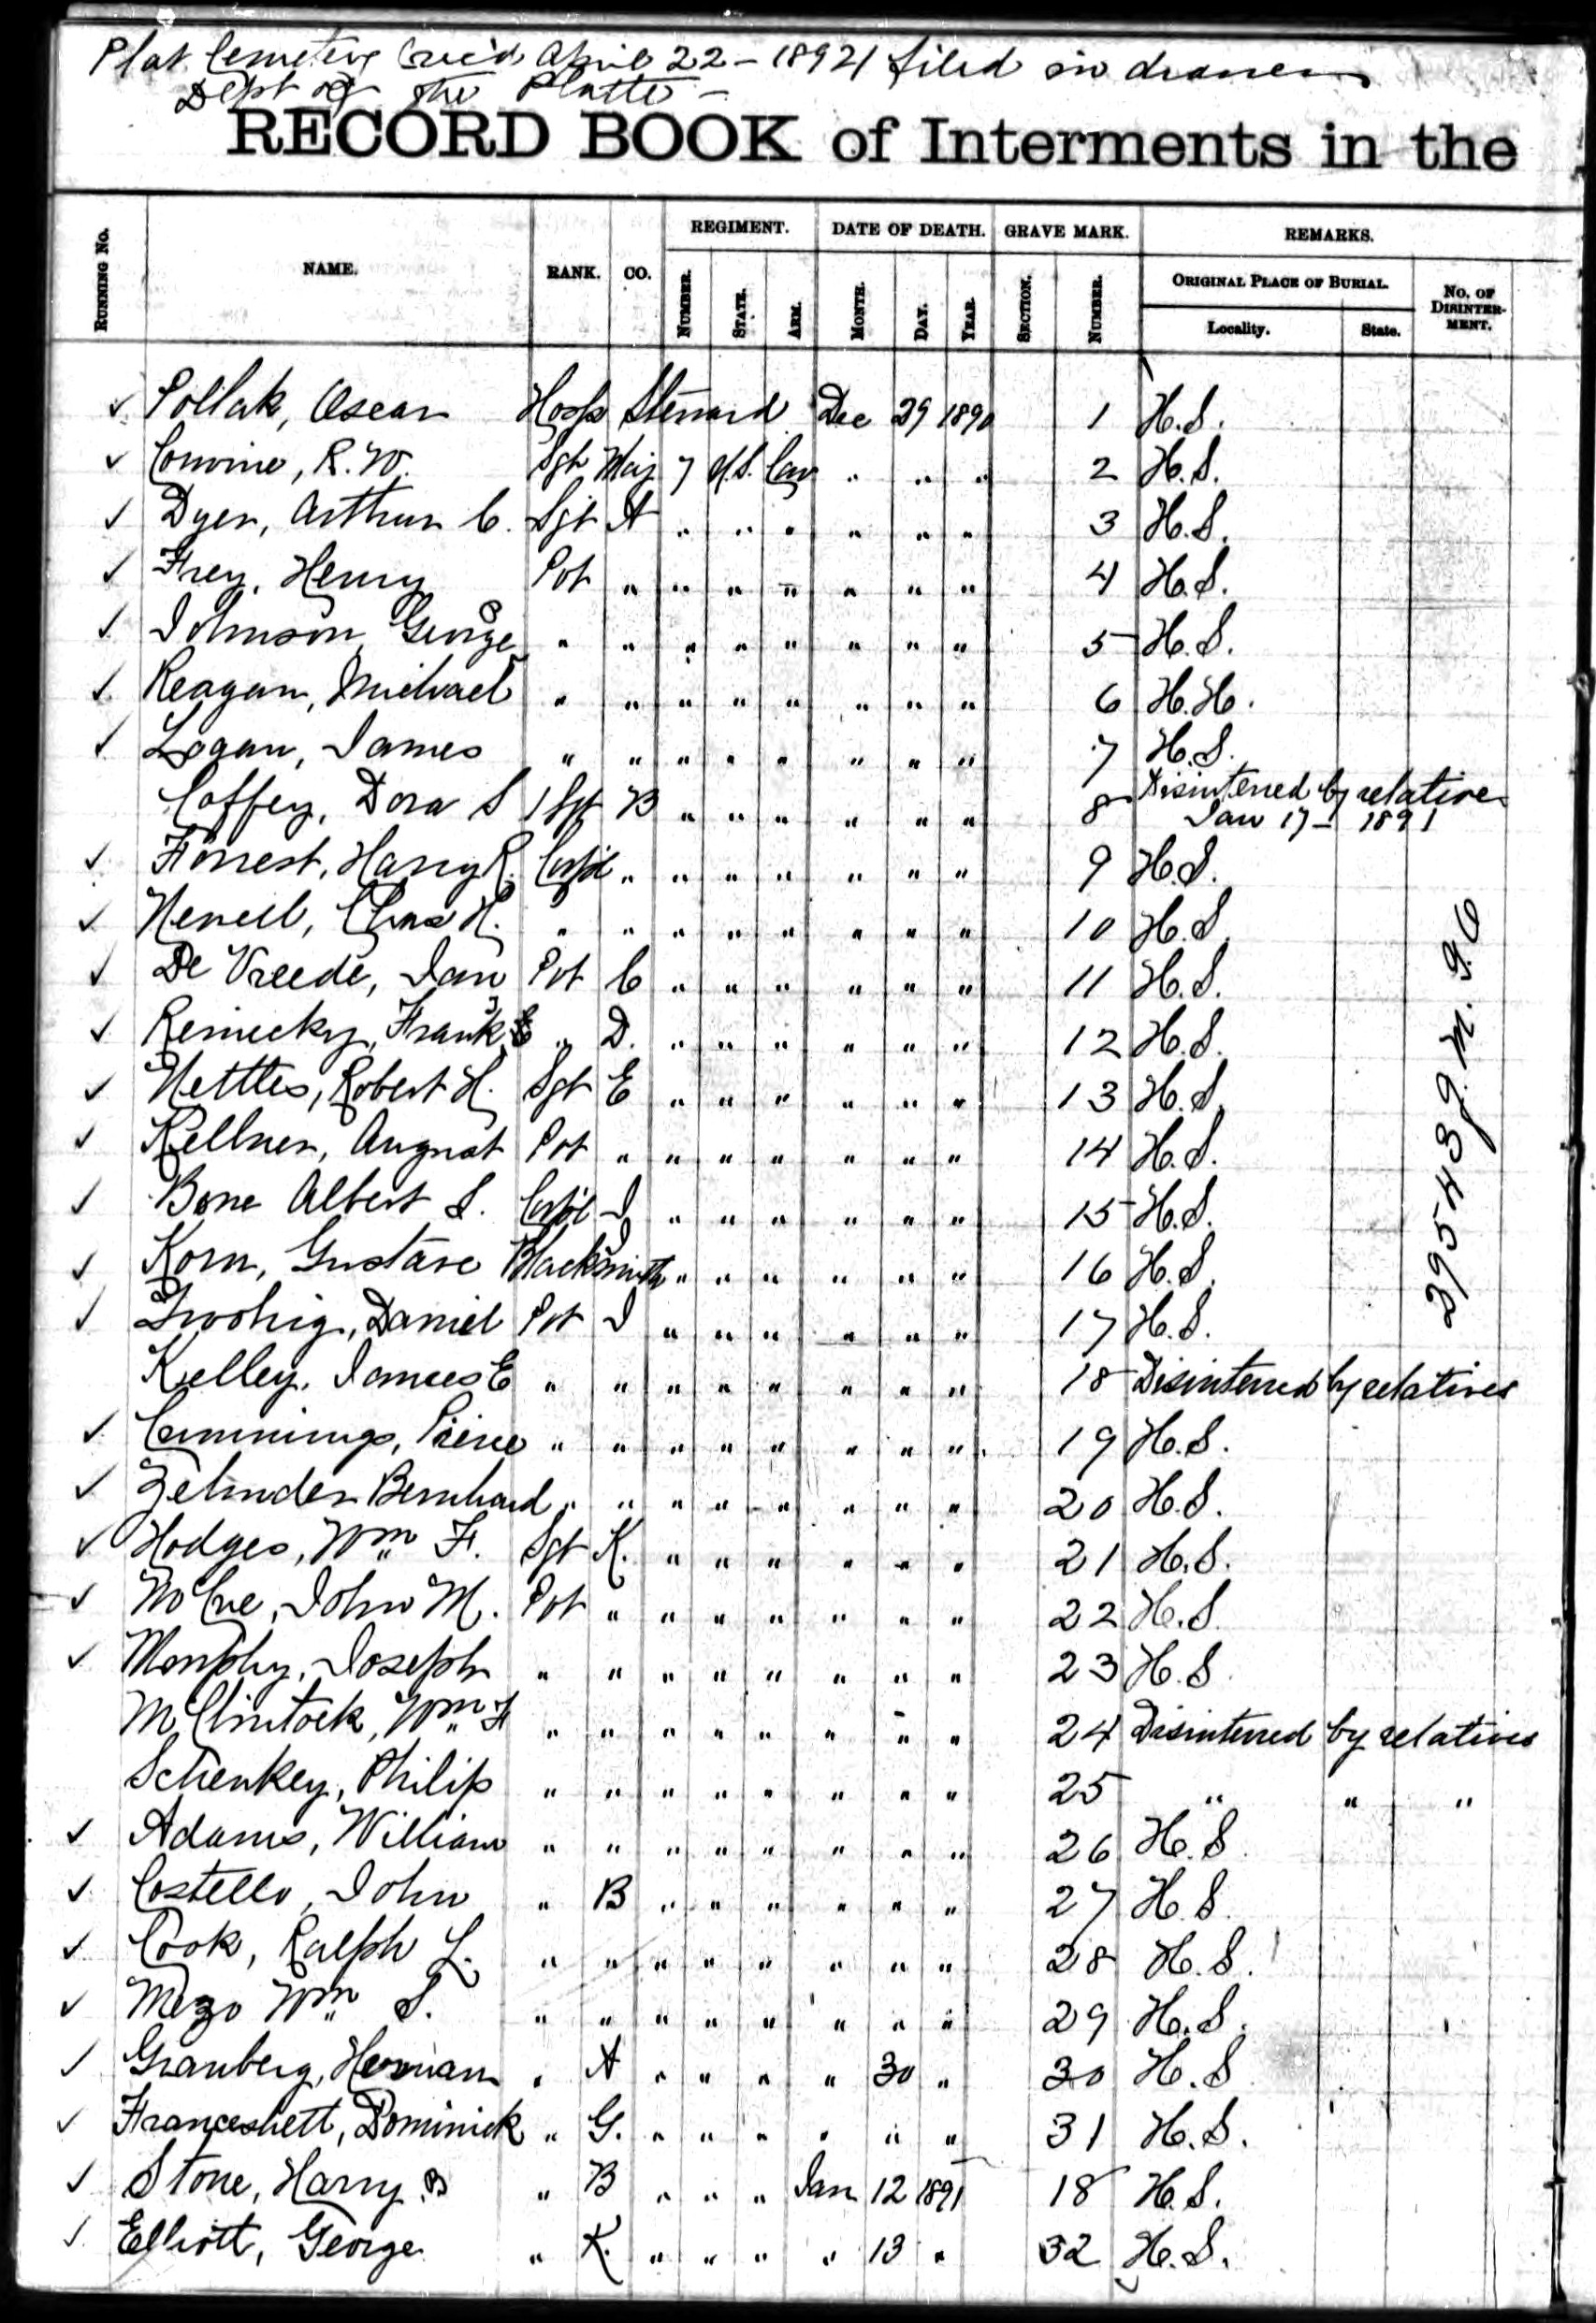 Plat Cemetery (rec'd April 22 - 1892) filed in drawer
Dept of the Platte -
RECORD BOOK of Interments in the
RUNNING No. NAME. RANK. CO. REGIMENT. DATE OF DEATH. GRAVE MARK. REMARKS.
NUMBER. STATE. ARM. MONTH. DAY. YEAR. SECTION. NUMBER. ORIGINAL PLACE OF BURIAL. No. OF DISINTERMENT.
Locality. State.
✓ Pollak, Oscar Hosp Steward Dec 29 1890 1 H.S.
✓ Corwine, R.W. Sgt Maj 7 U.S. Cav " " " 2 H.S.
✓ Dyer, Arthur C. Sgt A " " " " " " 3 H.S.
✓ Frey, Henry Pvt " " " " " " " 4 H.S.
✓ Johnson, George " " " " " " " " 5 H.S.
✓ Reagan, Michael " " " " " " " " 6 H.H.
✓ Logan, James " " " " " " " " 7 H.S.
Coffey, Dora S 1 Sgt B " " " " " " 8 Disinterred by relatives
Jan 17 - 1891
✓ Forrest, Harry R. Corp'l " " " " " " " 9 H.S.
✓ Newell, Chas H. " " " " " " " " 10 H.S.
✓ De Vreede, Jan Pvt C " " " " " " 11 H.S.
✓ Reinecky, Frank " D. " " " " " " 12 H.S.
✓ Nettles, Robert H. Sgt E " " " " " " 13 H.S.
✓ Kellner, August Pvt " " " " " " " 14 H.S.
✓ Bone Albert S. Corp'l I " " " " " " 15 H.S.
✓ Korn, Gustave Blacksmith " " " " " " 16 H.S.
✓ Twohig, Daniel Pvt I " " " " " " 17 H.S.
Kelley, James E " " " " " " " " 18 Disinterred by relatives
✓ Cummings, Pierce " " " " " " " " 19 H.S.
✓ Zehnder Bernhard " " " " " " " " 20 H.S.
✓ Hodges, Wm F. Sgt K. " " " " " " 21 H.S.
✓ McCue, John M. Pvt " " " " " " " 22 H.S.
✓ Murphy, Joseph " " " " " " " " 23 H.S.
McClintock, Wm F " " " " " " " " 24 Disinterred by relatives
Schenkey, Philip " " " " " " " " 25 " " "
✓ Adams, William " " " " " " " " 26 H.S.
✓ Costello, John " B " " " " " " 27 H.S.
✓ Cook, Ralph L. " " " " " " " " 28 H.S.
✓ Mezo Wm S. " " " " " " " " 29 H.S.
✓ Granberg, Herman " A " " " " 30 " 30 H.S.
✓ Franceshett, Dominick " G. " " " " " " 31 H.S.
✓ Stone, Harry B " B " " " Jan 12 1891 18 H.S.
✓ Elliott, George " K. " " " " 13 " 32 H.S.